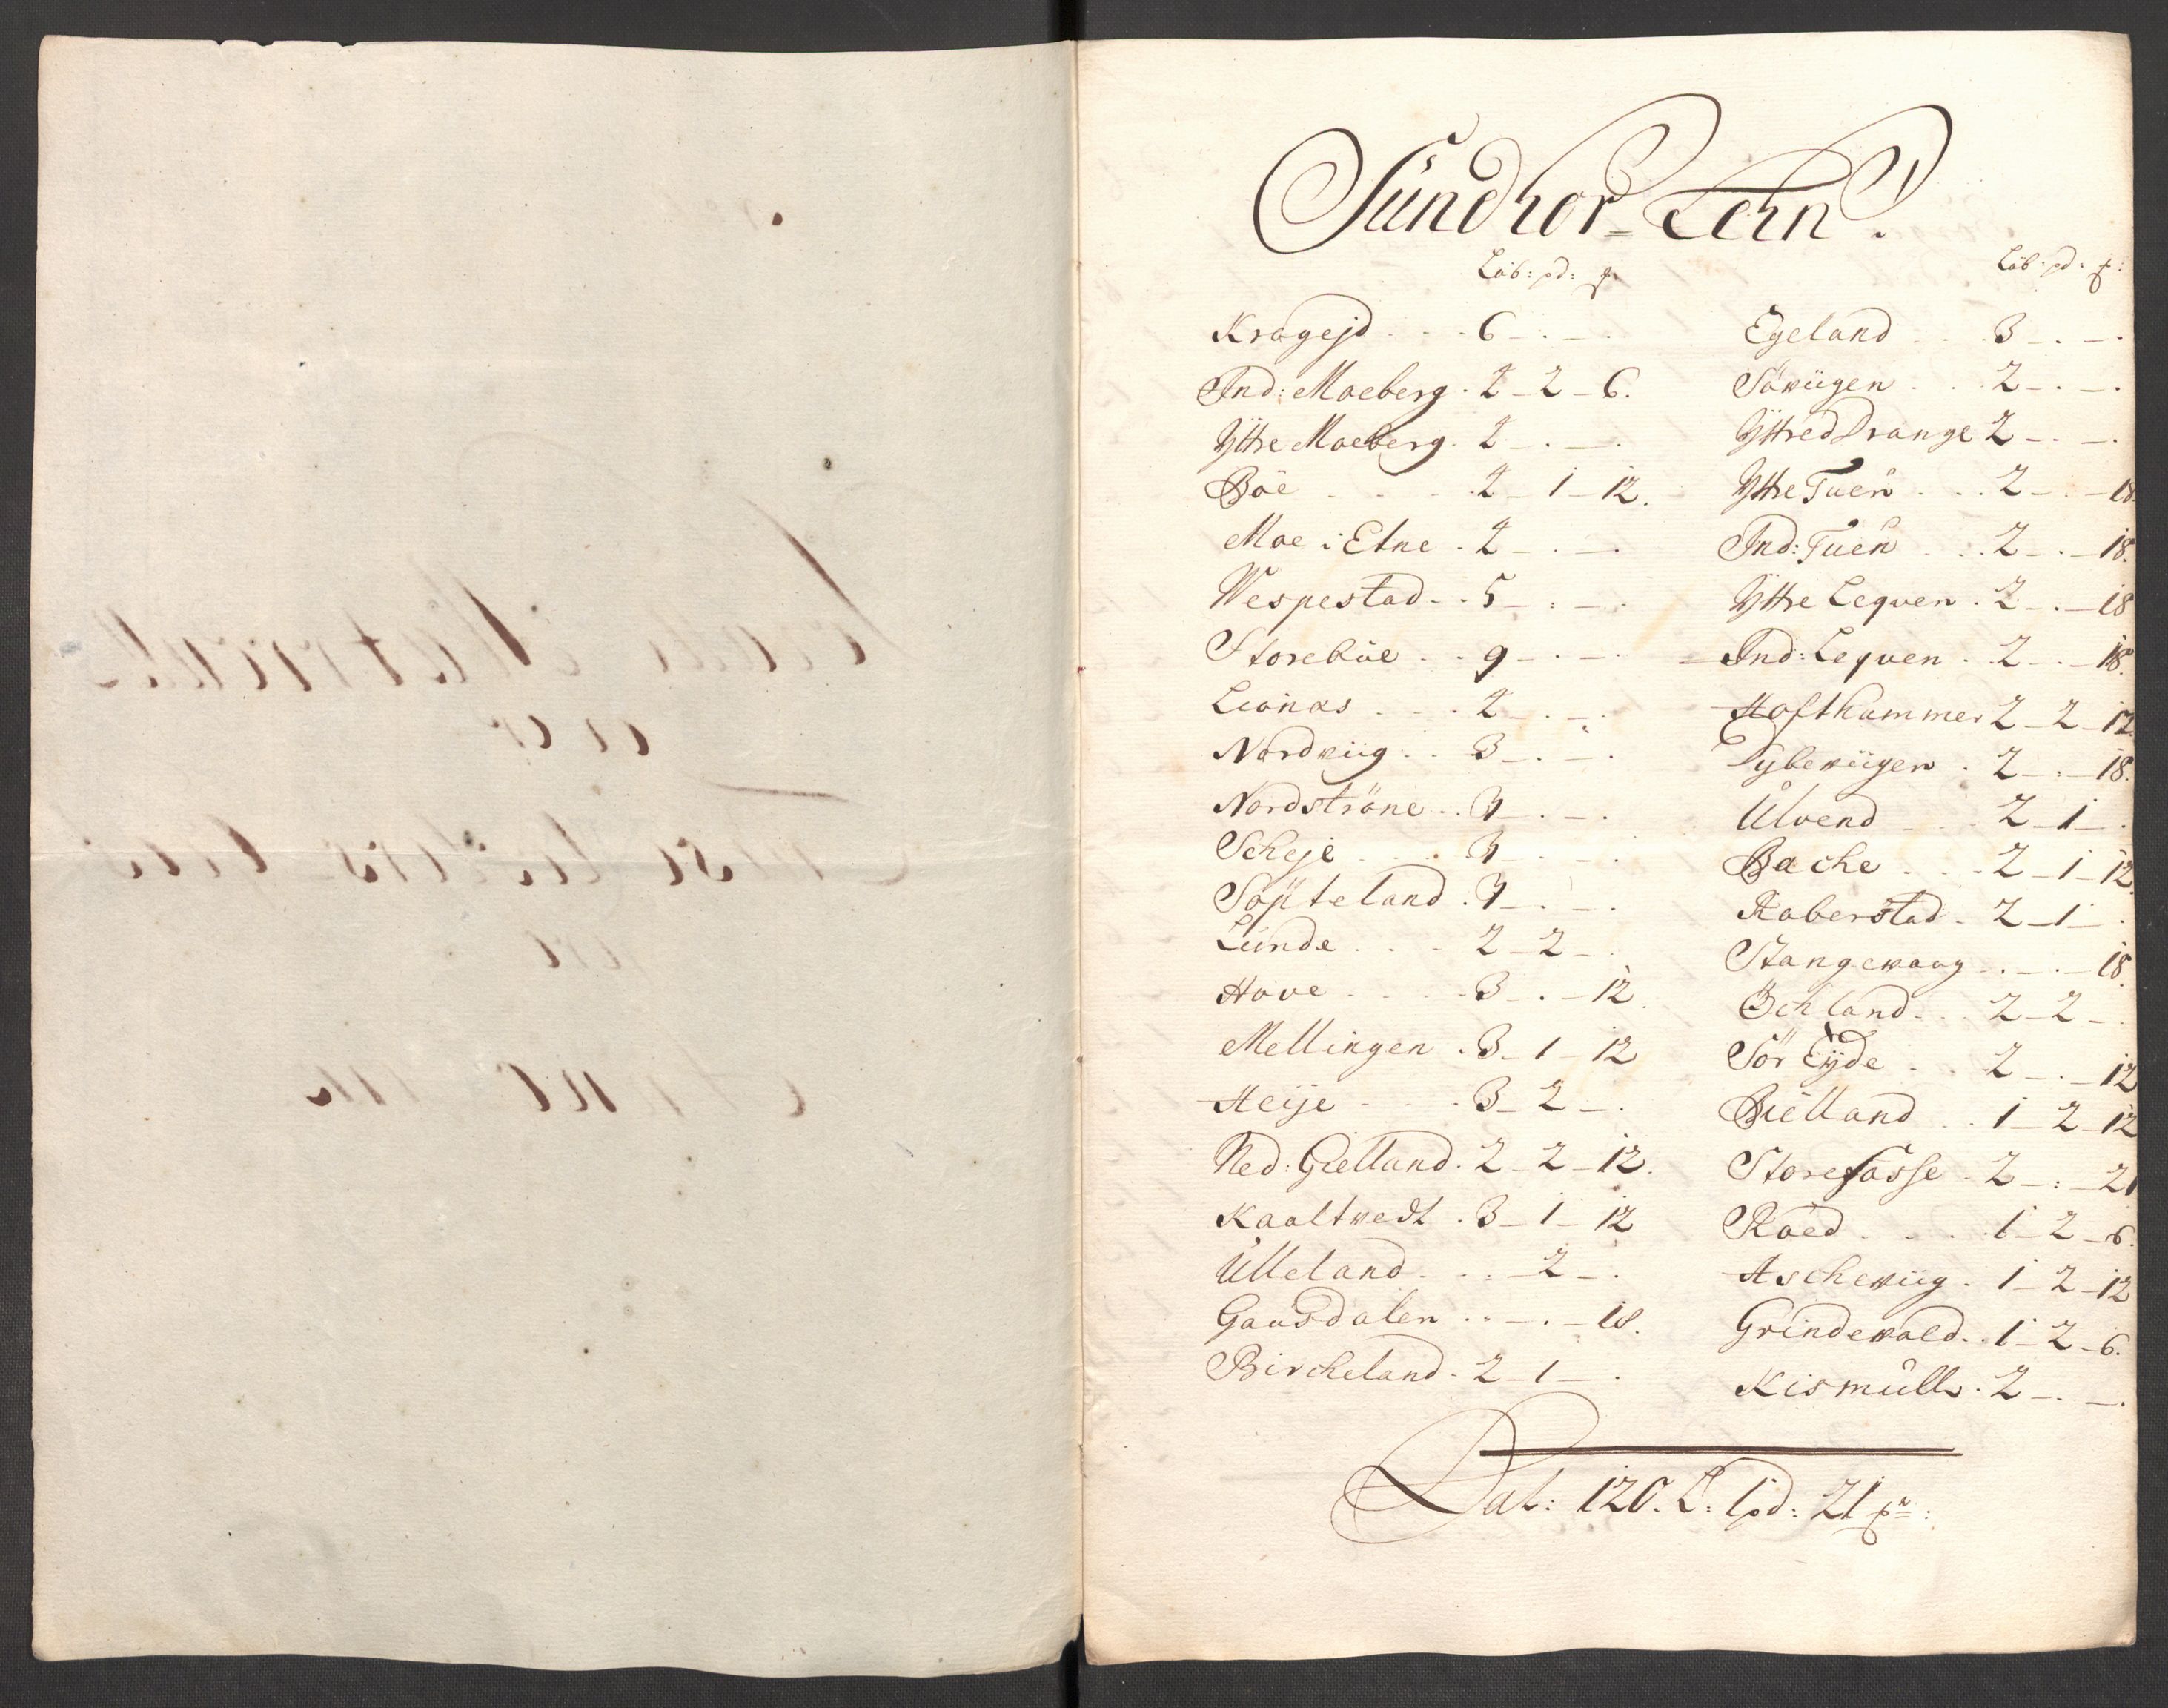 Sundhor-Lehn.
Löb: pd: ₰:
Kragejd . . . 6 - . - .
Ind: Moeberg . 4 - 2 - 6.
Yttre Moeberg . 4 - . - .
Böe . . . . 4 - 1 - 12.
Moe i Etne . 4 - . - .
Wespestad . . 5 - : - .
Storeböe . . 9 - . - .
Leonas . . . 4 - . - .
Nordviig . . 3 - . - .
Nordströne . . 3 - . - .
Scheje . . . 3 - . - .
Söpteland . 3 - . - .
Lunde . . . 2 - 2 - .
Hove . . . . 3 - . - 12.
Mellingen . 3 - 1 - 12
Heije . . . . 3 - 2 - .
Ned: Gielland . 2 - 2 - 12.
Kaaltvedt . 3 - 1 - 12
Ulleland . . : - 2 - .
Gausdalen . . - . - 18.
Bircheland . 2 - 1 - .
Löb: pd: ₰:
Egeland . . . 3 - . - .
Söviigen . . . 2 - . - .
Yttred Drange 2 - . - .
Yttre Tuen . . . 2 - . - 18.
Ind: Tuen . . . 2 - . - 18.
Yttre Leqven . 2 - . - 18
Ind: Leqven . . 2 - . - 18.
Hofthammer 2 - 2 - 12.
Tybeviigen . 2 - : - 18.
Ulvend . . . 2 - 1 - .
Bache . . . 2 - 1 - 12.
Raberstad . 2 - 1 - .
Stangevaag . . - . - 18.
Öchland . . . 2 - 2 - .
Sör Eyde . . 2 - . - 12
Bielland . . 1 - 2 - 12
Storefosse . 2 - : - 21
Röed . . . . 1 - 2 - 6.
Ascheviig . 1 - 2 - 12
Grindevold . . 1 - 2 - 6.
Kismull . 2 - . - .
Lat: 120. L: 1pd: 21